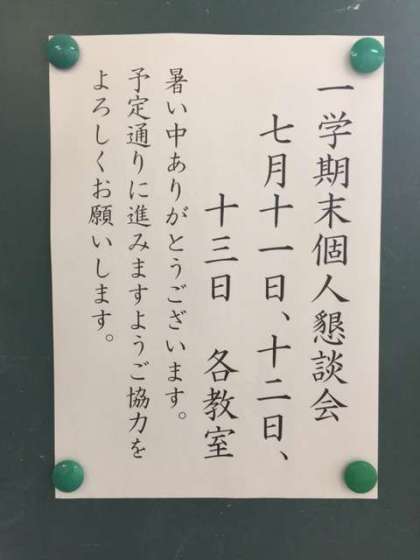 一学期末個人懇談会
七月十一日、十二日、
十三日 各教室
暑い中ありがとうございます。
予定通りに進みますようご協力を
よろしくお願いします。